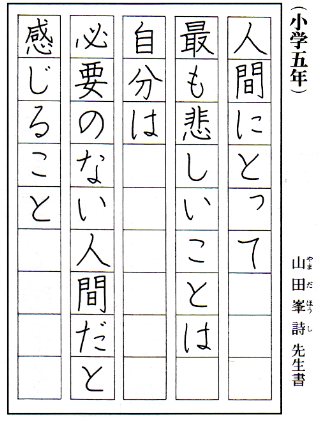 （小学五年）
山田峯詩先生書
やまだほうし
人間にとって
最も悲しいことは
自分は
必要のない人間だと
感じること